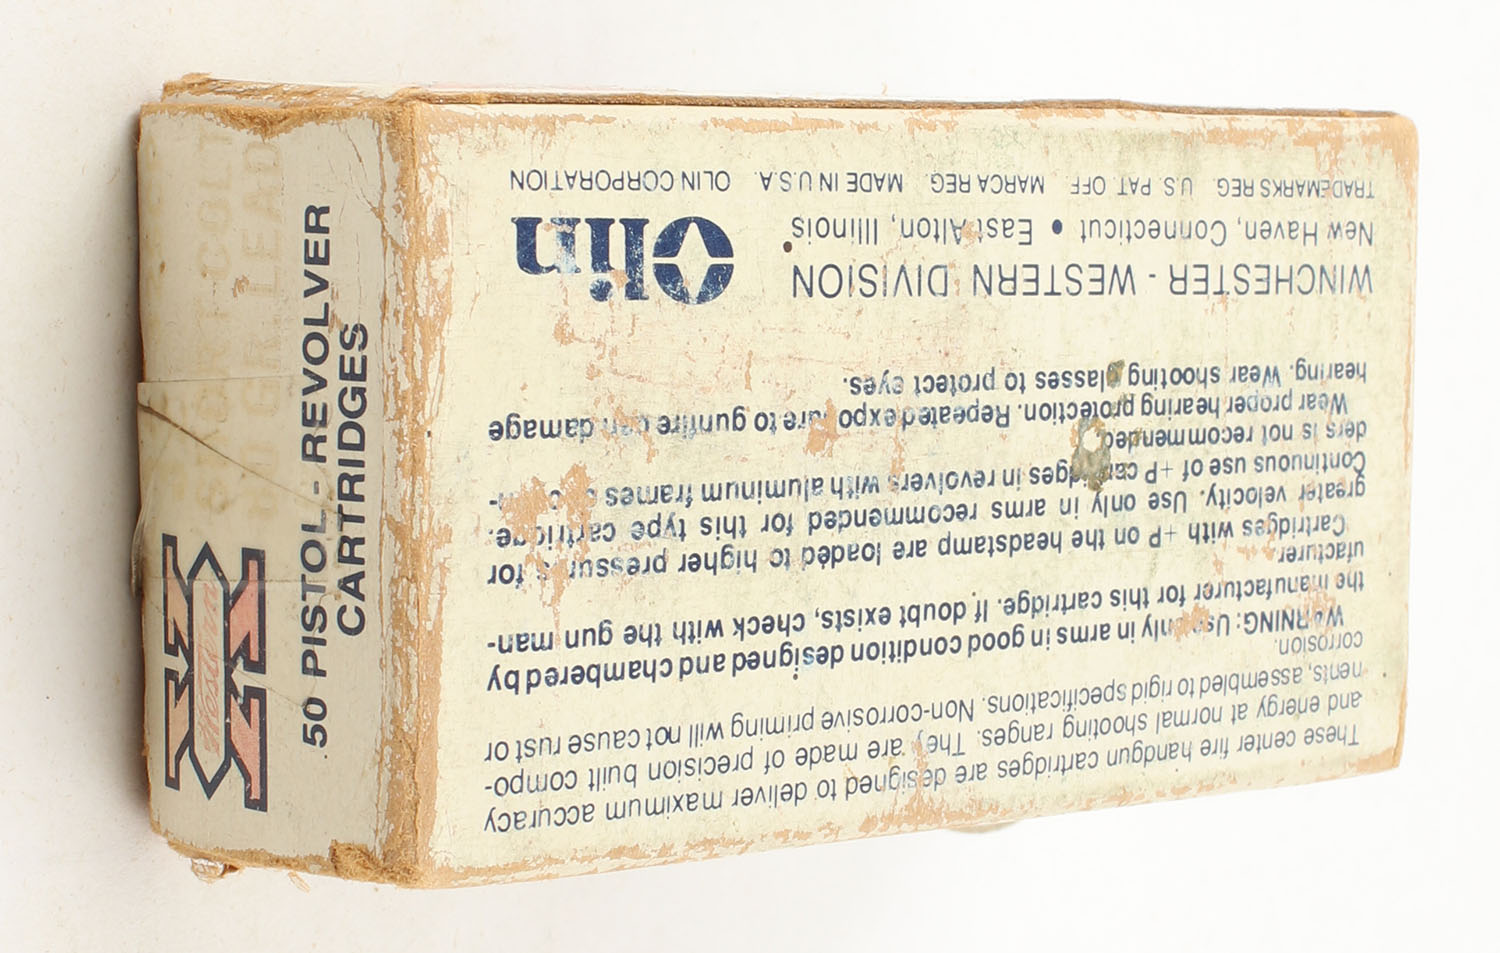 These center fire handgun cartridges are designed to deliver maximum accuracy
and energy at normal shooting ranges. They are made of precision built compo-
nents, assembled to rigid specifications. Non-corrosive priming will not cause rust or
corrosion.
WARNING: Use only in arms in good condition designed and chambered by
the manufacturer for this cartridge. If doubt exists, check with the gun man-
ufacturer.
Cartridges with +P on the headstamp are loaded to higher pressures for
greater velocity. Use only in arms recommended for this type cartridge.
Continuous use of +P cartridges in revolvers with aluminum frames
ders is not recommended.
Wear proper hearing protection. Repeated exposure to gunfire can damage
hearing. Wear shooting glasses to protect eyes.
WINCHESTER - WESTERN DIVISION
New Haven, Connecticut • East Alton, Illinois
Olin
TRADEMARKS REG. U.S. PAT. OFF. MARCA REG. MADE IN U.S.A. OLIN CORPORATION
Western
X
50 PISTOL - REVOLVER
CARTRIDGES
COLT
LEAD